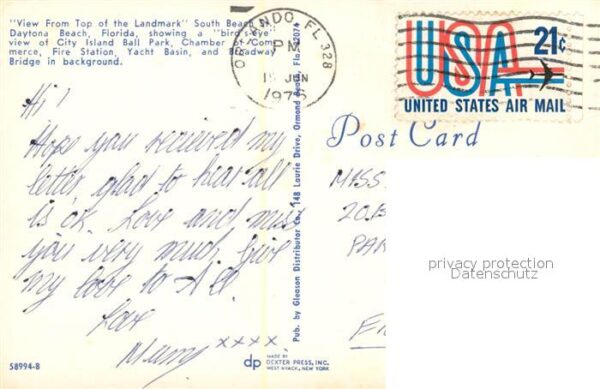 "View From Top of the Landmark" South Beach St.
Daytona Beach, Florida, showing a "bird's-eye"
view of City Island Ball Park, Chamber of Com-
merce, Fire Station, Yacht Basin, and Broadway
Bridge in background.
ORLANDO, FL 328
PM
15 JUN
1975
USA 21¢
UNITED STATES AIR MAIL
Post Card
Hi!
Hope you recieved my
letter, glad to hear all
is ok. Love and miss
you very much. Give
my love to All
Love
Mum xxxx
Pub. by Gleason Distributor Co., 148 Laurie Drive, Ormond Beach, Fla. 32074
MISS
20B
PAR
privacy protection
Datenschutz
58994-B
dp
MADE BY
DEXTER PRESS, INC.
WEST NYACK, NEW YORK